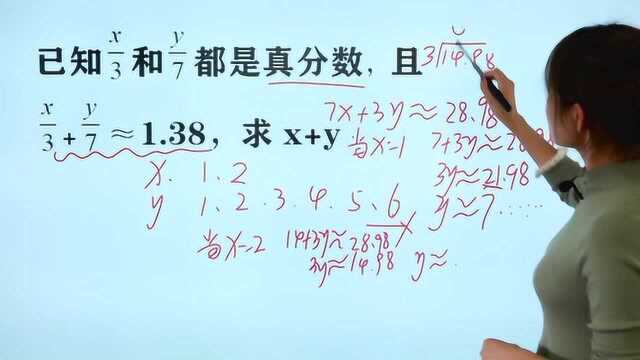 已知 x/3 和 y/7 都是真分数，且
x/3 + y/7 ≈ 1.38，求 x+y
3√14.98
7x+3y≈28.98
当x=1
3y≈21.98
y≈7……
x、1、2
y 1、2、3、4、5、6
当x=2
14+3y≈28.98
3y≈14.98
y≈